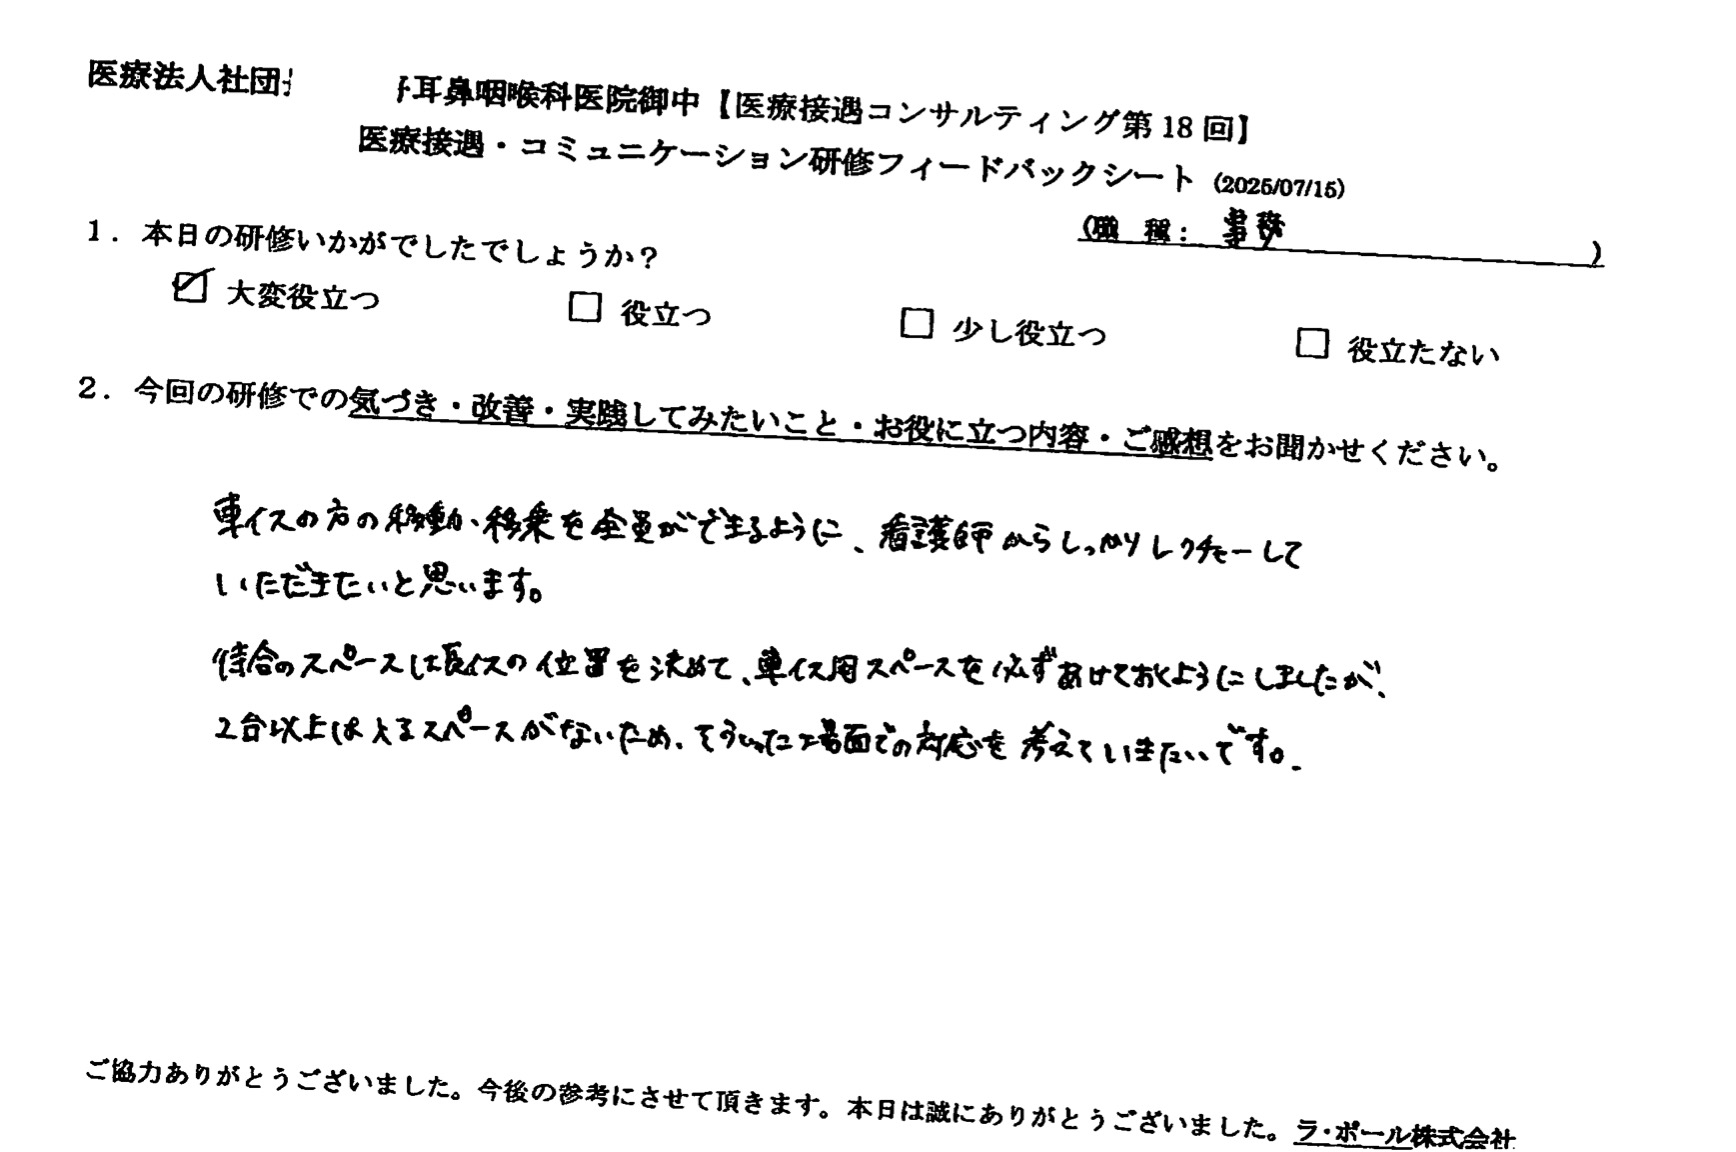 医療法人社団
耳鼻咽喉科医院御中【医療接遇コンサルティング第18回】
医療接遇・コミュニケーション研修フィードバックシート (2025/07/15)
(職 種: 事務 )
1. 本日の研修いかがでしたでしょうか?
☑ 大変役立つ □ 役立つ □ 少し役立つ □ 役立たない
2. 今回の研修での気づき・改善・実践してみたいこと・お役に立つ内容・ご感想をお聞かせください。
車イスの方の移動、移乗を全員ができるように、看護師からしっかりレクチャーして
いただきたいと思います。
待合のスペースは長イスの位置を決めて、車イス用スペースを必ずあけておくようにしましたが、
2台以上はとるスペースがないため、そういった場面での対応を考えていきたいです。
ご協力ありがとうございました。今後の参考にさせて頂きます。本日は誠にありがとうございました。ラ・ポール株式会社